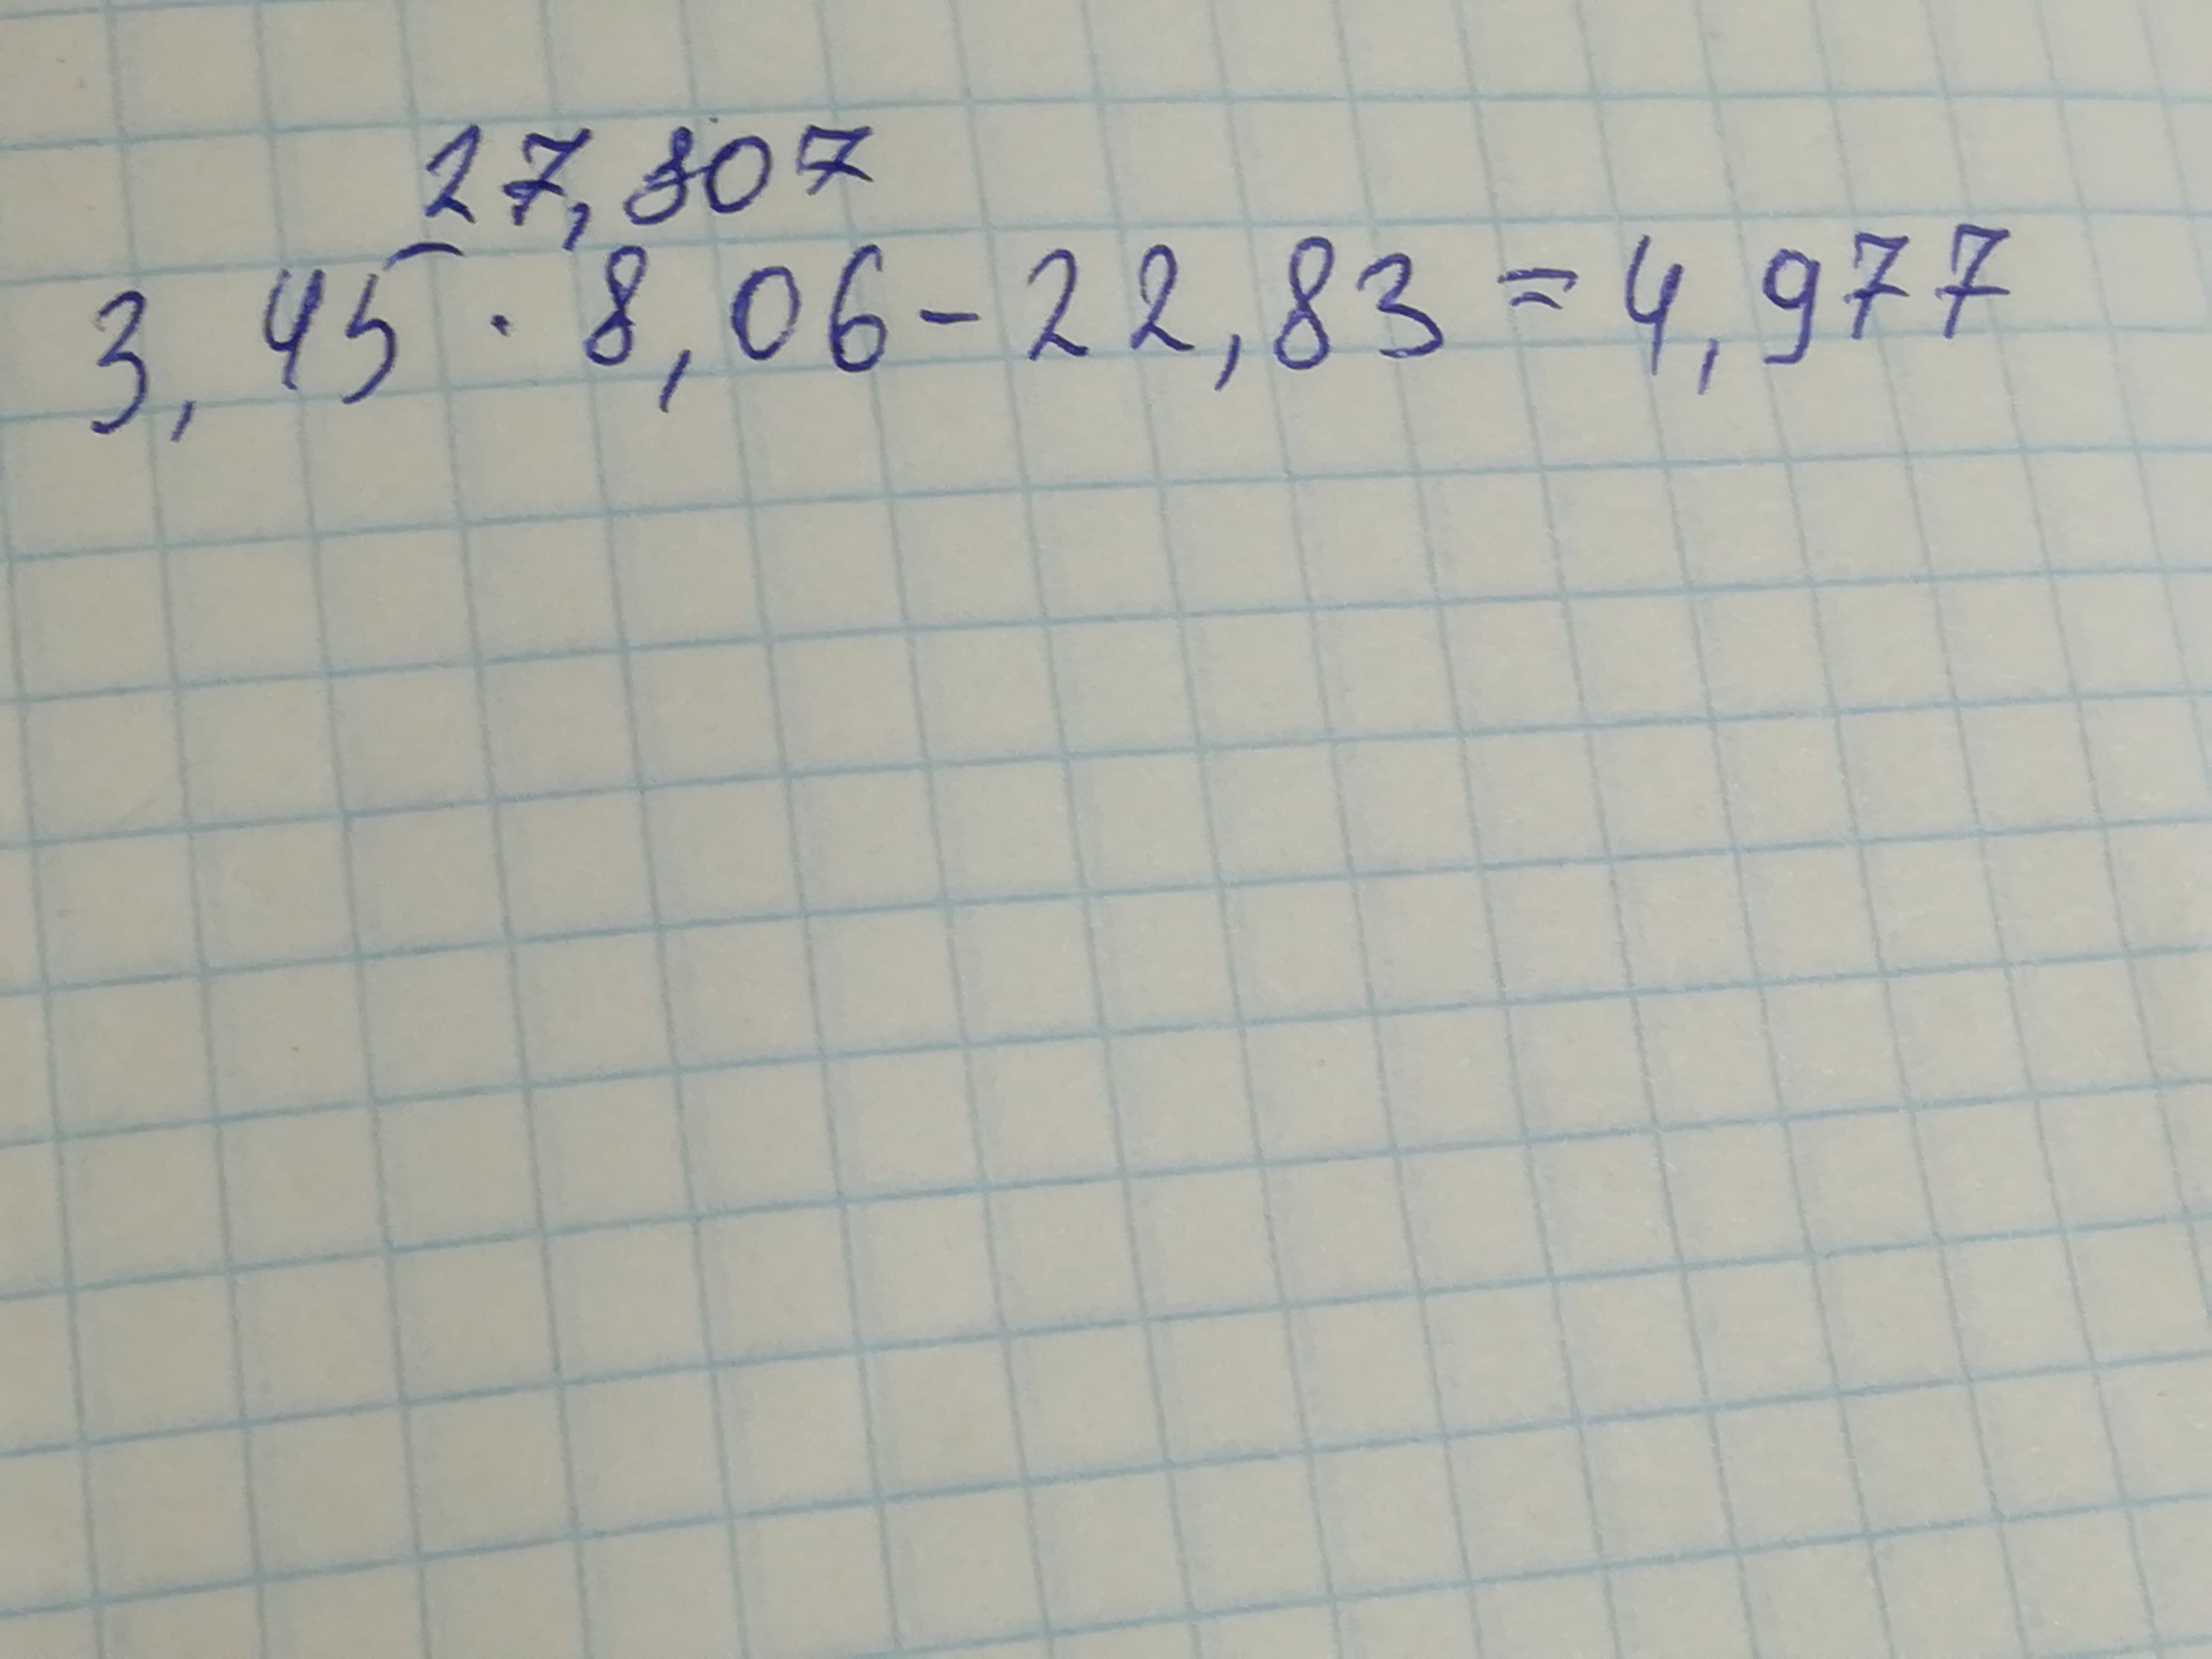 27,807
3,45 · 8,06 - 22,83 = 4,977